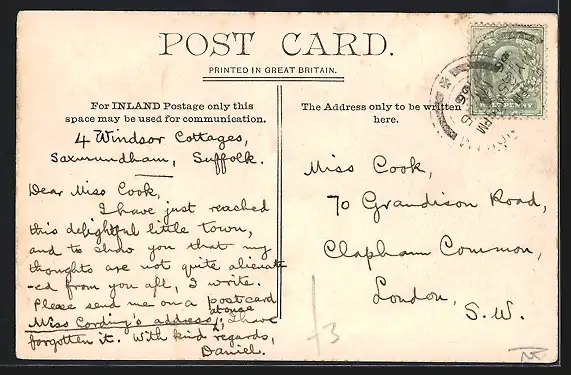 POST CARD.
PRINTED IN GREAT BRITAIN.
For INLAND Postage only this
space may be used for communication.
The Address only to be written
here.
4 Windsor Cottages,
Saxmundham, Suffolk.
Dear Miss Cook,
I have just reached
this delightful little town,
and to show you that my
thoughts are not quite alienat
-ed from you all, I write.
Please send me on a postcard
at once
Miss Cording's address, I have
forgotten it. With kind regards,
Daniel.
Miss Cook,
70 Grandison Road,
Clapham Common,
London,
S.W.
HALFPENNY
£3